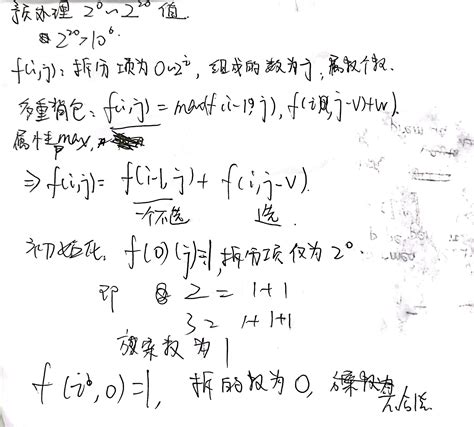 预处理 2⁰~2²⁰ 值.
2²⁰>10⁶.
f(i,j): 拆分项为0~2ⁱ, 组成的数为j, 属数个数.
多重背包: f(i,j) = max(f(i-1,j), f(i,j-v)+w).
属性max,
⇒ f(i,j)= f(i-1,j)+ f(i,j-v).
一个不选 选.
初始化: f(0)(j)=1, 拆分项仅为2⁰.
即 2 = 1+1
3 = 1+1+1
方案数为1
f(i,0)=1, 拆的数为0, 方案数为